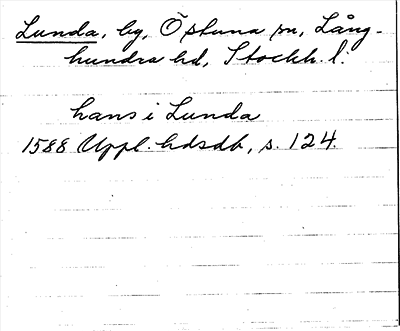 Lunda, by, Östuna sn, Lång-
hundra hd, Stockh. l.
hans i Lunda
1588 Uppl. hdsdb, s. 124